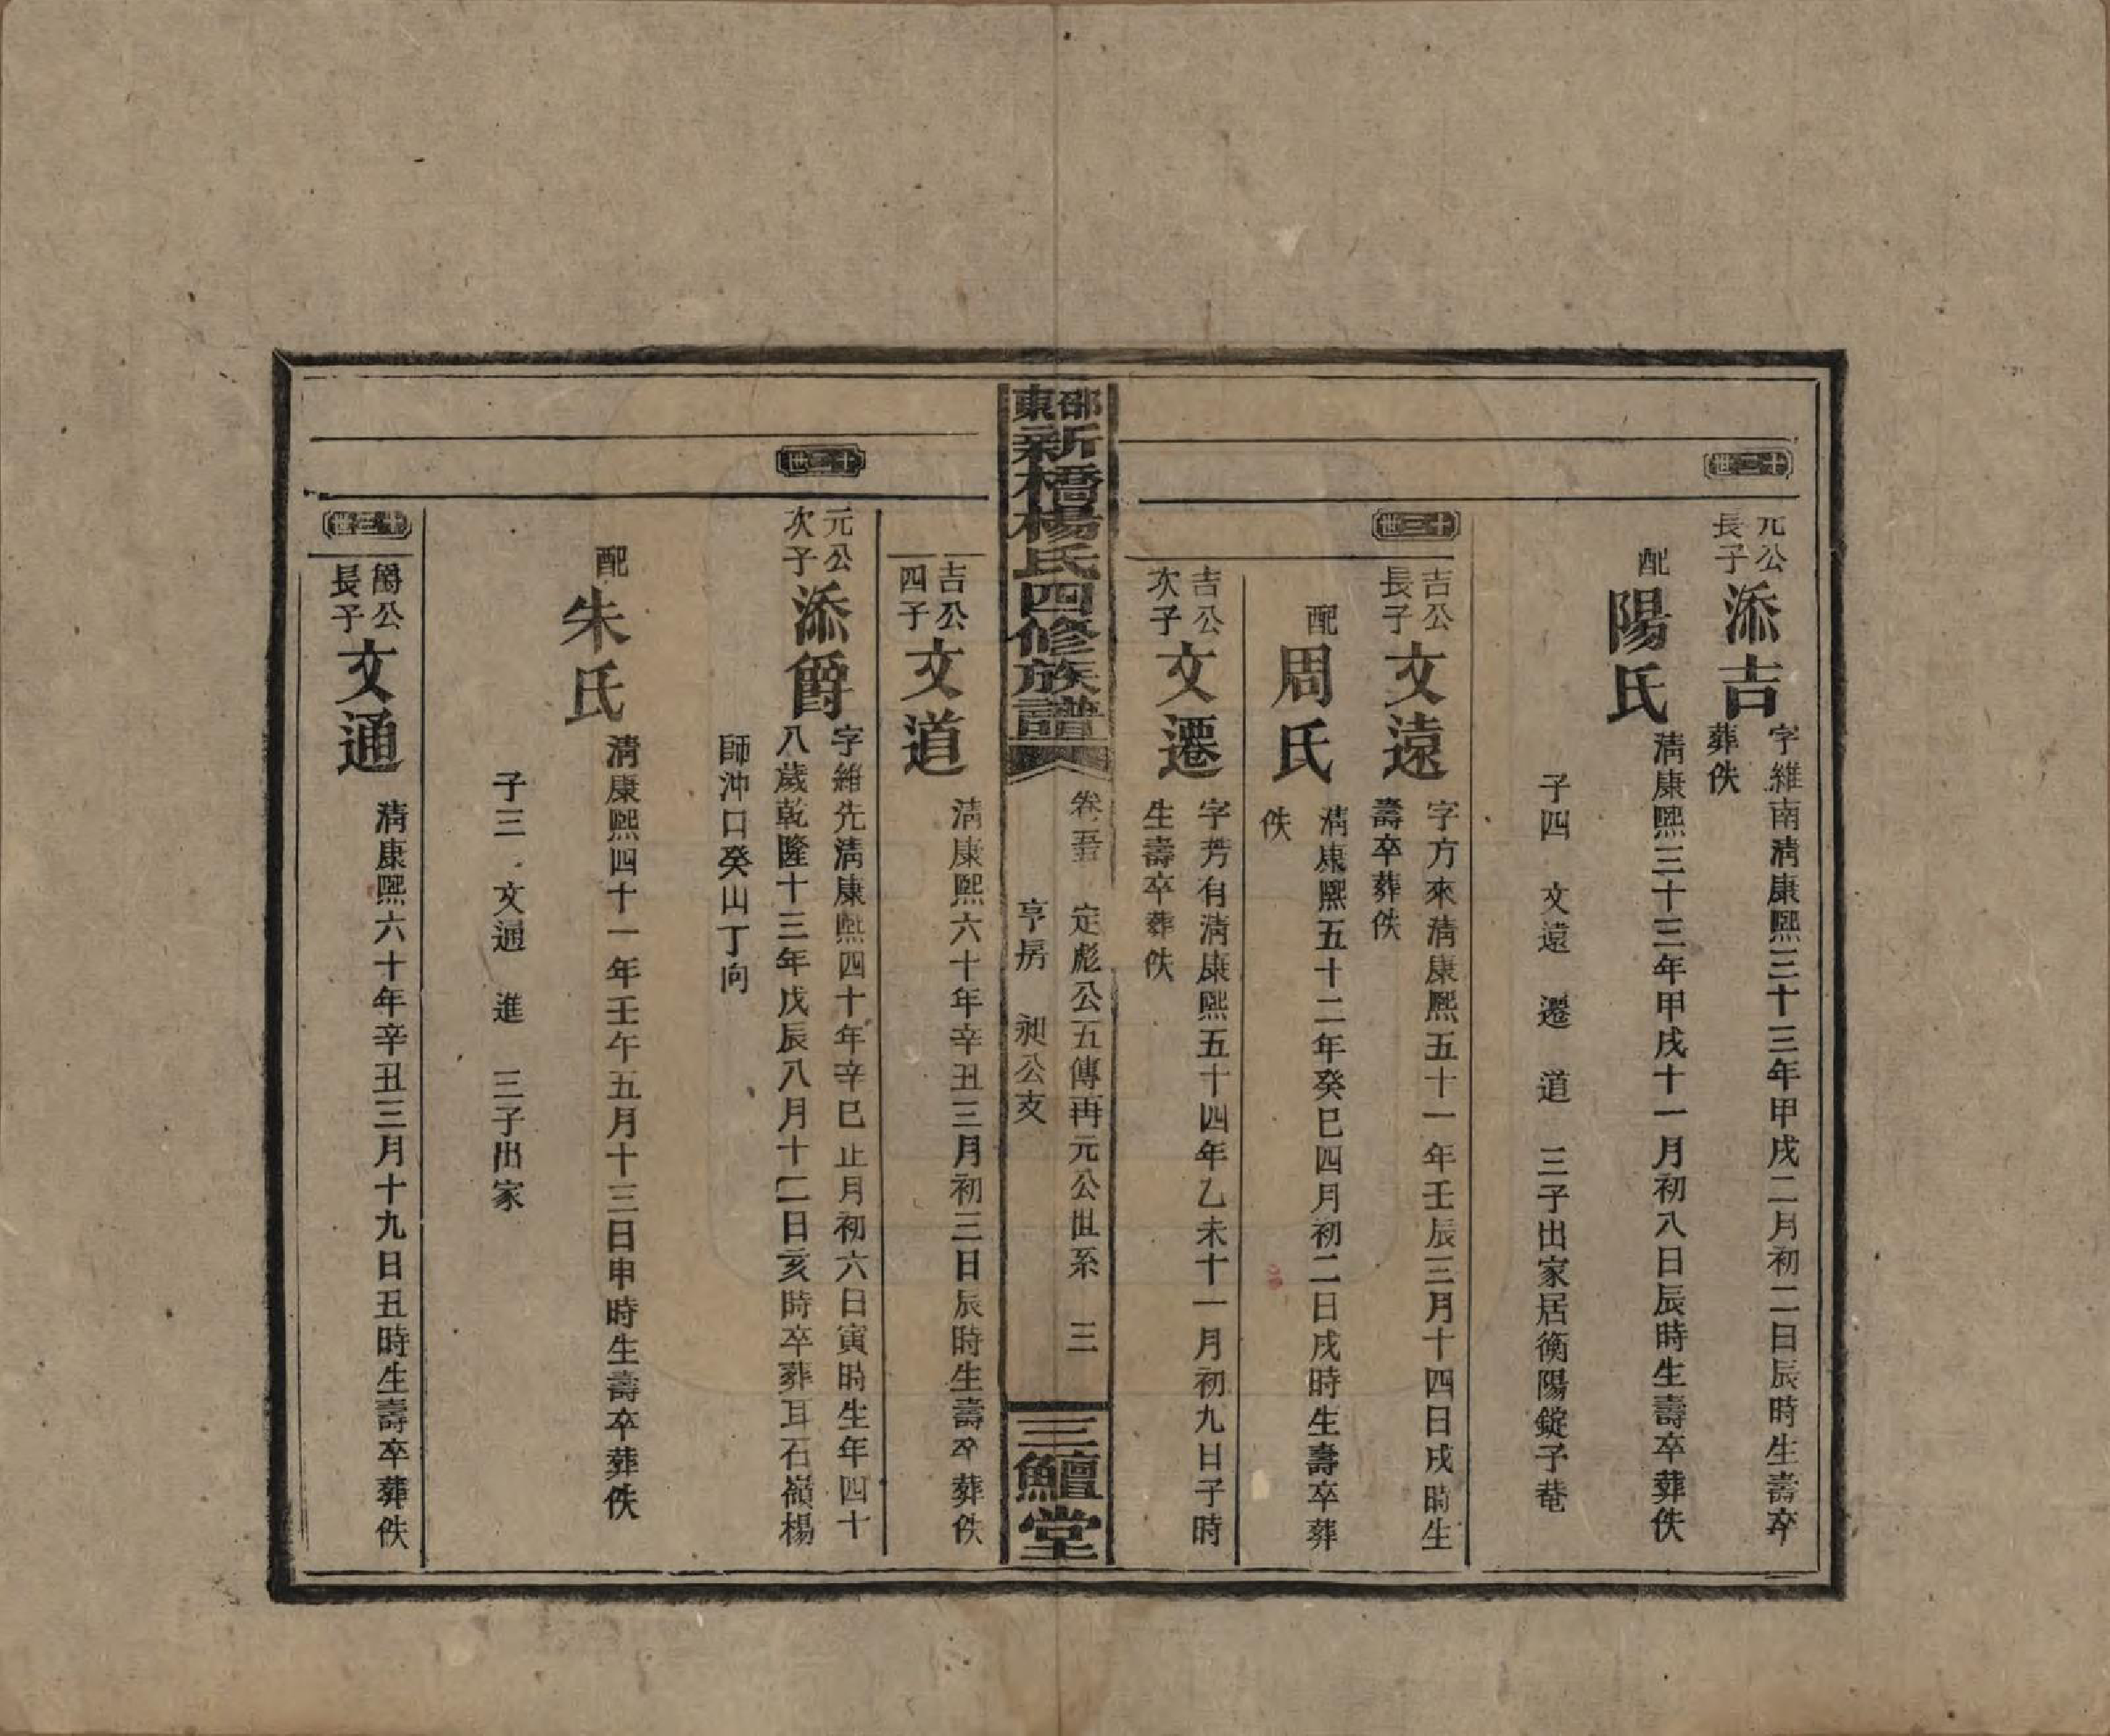 十二世
元公長子
添吉
字維南清康熙三十三年甲戌二月初二日辰時生壽卒
葬佚
配
陽氏
清康熙三十三年甲戌十一月初八日辰時生壽卒葬佚
子四　文遠　遷　道　三子出家居衡陽錠子菴
十三世
吉公長子
文遠
字方來清康熙五十一年壬辰三月十四日戌時生
壽卒葬佚
配
周氏
清康熙五十二年癸巳四月初二日戌時生壽卒葬
佚
吉公次子
文遷
字芳有清康熙五十四年乙未十一月初九日子時
生壽卒葬佚
邵東新橋楊氏四修族譜
卷五　定彪公五傳再元公世系　三
亨房　昶公支
三鱣堂
吉公四子
文道
清康熙六十年辛丑三月初三日辰時生壽卒葬佚
十二世
元公次子
添爵
字維先清康熙四十年辛巳正月初六日寅時生年四十
八歲乾隆十三年戊辰八月十二日亥時卒葬耳石嶺楊
師沖口癸山丁向
配
朱氏
清康熙四十一年壬午五月十三日申時生壽卒葬佚
子三　文通　進　三子出家
十三世
爵公長子
文通
清康熙六十年辛丑三月十九日丑時生壽卒葬佚